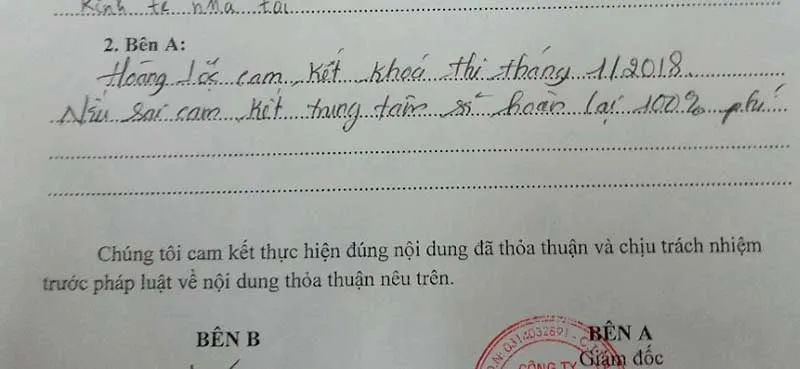 Kinh tế nhà tôi
2. Bên A:
Hoàng Lộc cam kết khoá thi tháng 1/2018
Nếu sai cam kết trung tâm sẽ hoàn lại 100% phí
Chúng tôi cam kết thực hiện đúng nội dung đã thỏa thuận và chịu trách nhiệm
trước pháp luật về nội dung thỏa thuận nêu trên.
BÊN B
BÊN A
Giám đốc
CÔNG TY